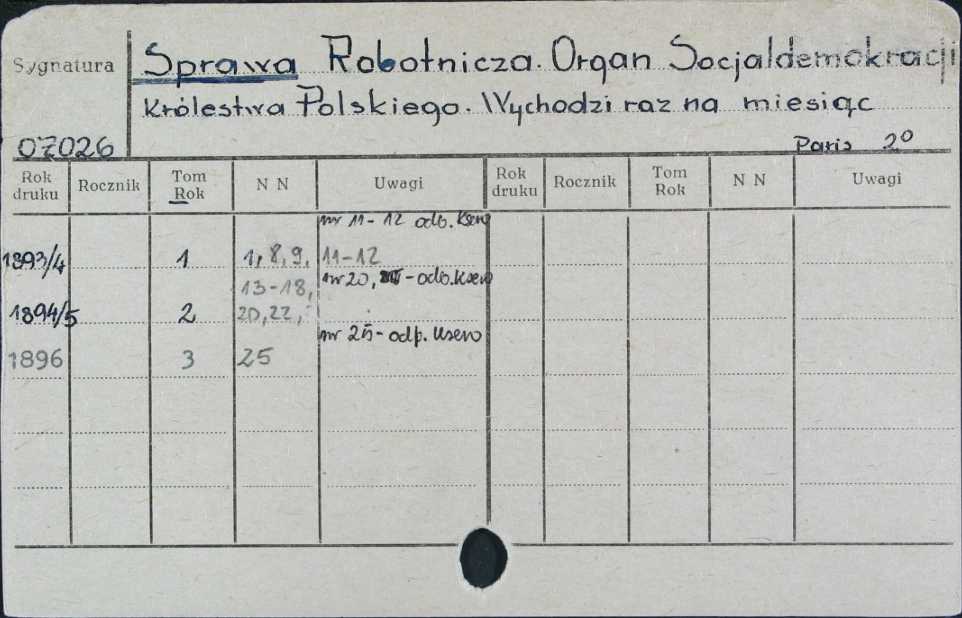 Sygnatura
Sprawa Robotnicza. Organ Socjaldemokracji
Królestwa Polskiego. Wychodzi raz na miesiąc
07026 Paris 2°
Rok druku Rocznik Tom Rok N N Uwagi Rok druku Rocznik Tom Rok N N Uwagi
nr 11-12 odb. ksero
1893/4 1 1, 8, 9, 11-12
13-18, nr 20, - odb. ksero
1894/5 2 20, 22,
nr 25 - odp. ksero
1896 3 25